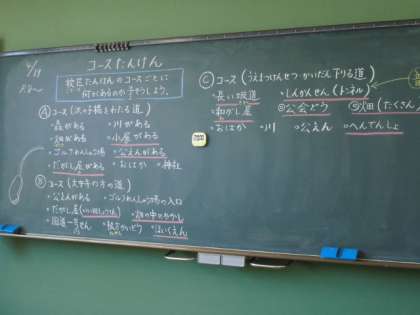 コースたんけん
校区たんけんのコースごとに
何があるのか予そうしよう。
Ⓐコース(次の手橋をわたる道)
・森がある ・川がある
・畑がある ・小屋がある
・ゴルフれんしゅう場 ・公えんがある
・だがし屋がある ・おはか ・神社
Ⓑコース
・公えんがある ・ゴルフれんしゅう場の入口
・だがし屋
・国道一号せん ・ほいくえん
Ⓒコース(うえきけんせつ・かいだん下りる道)
・長い坂道 ・しんかんせん(トンネル)
・和がし屋 ・公会どう ・田(たくさん
・おはか ・川 ・公えん ・へんでんしょ